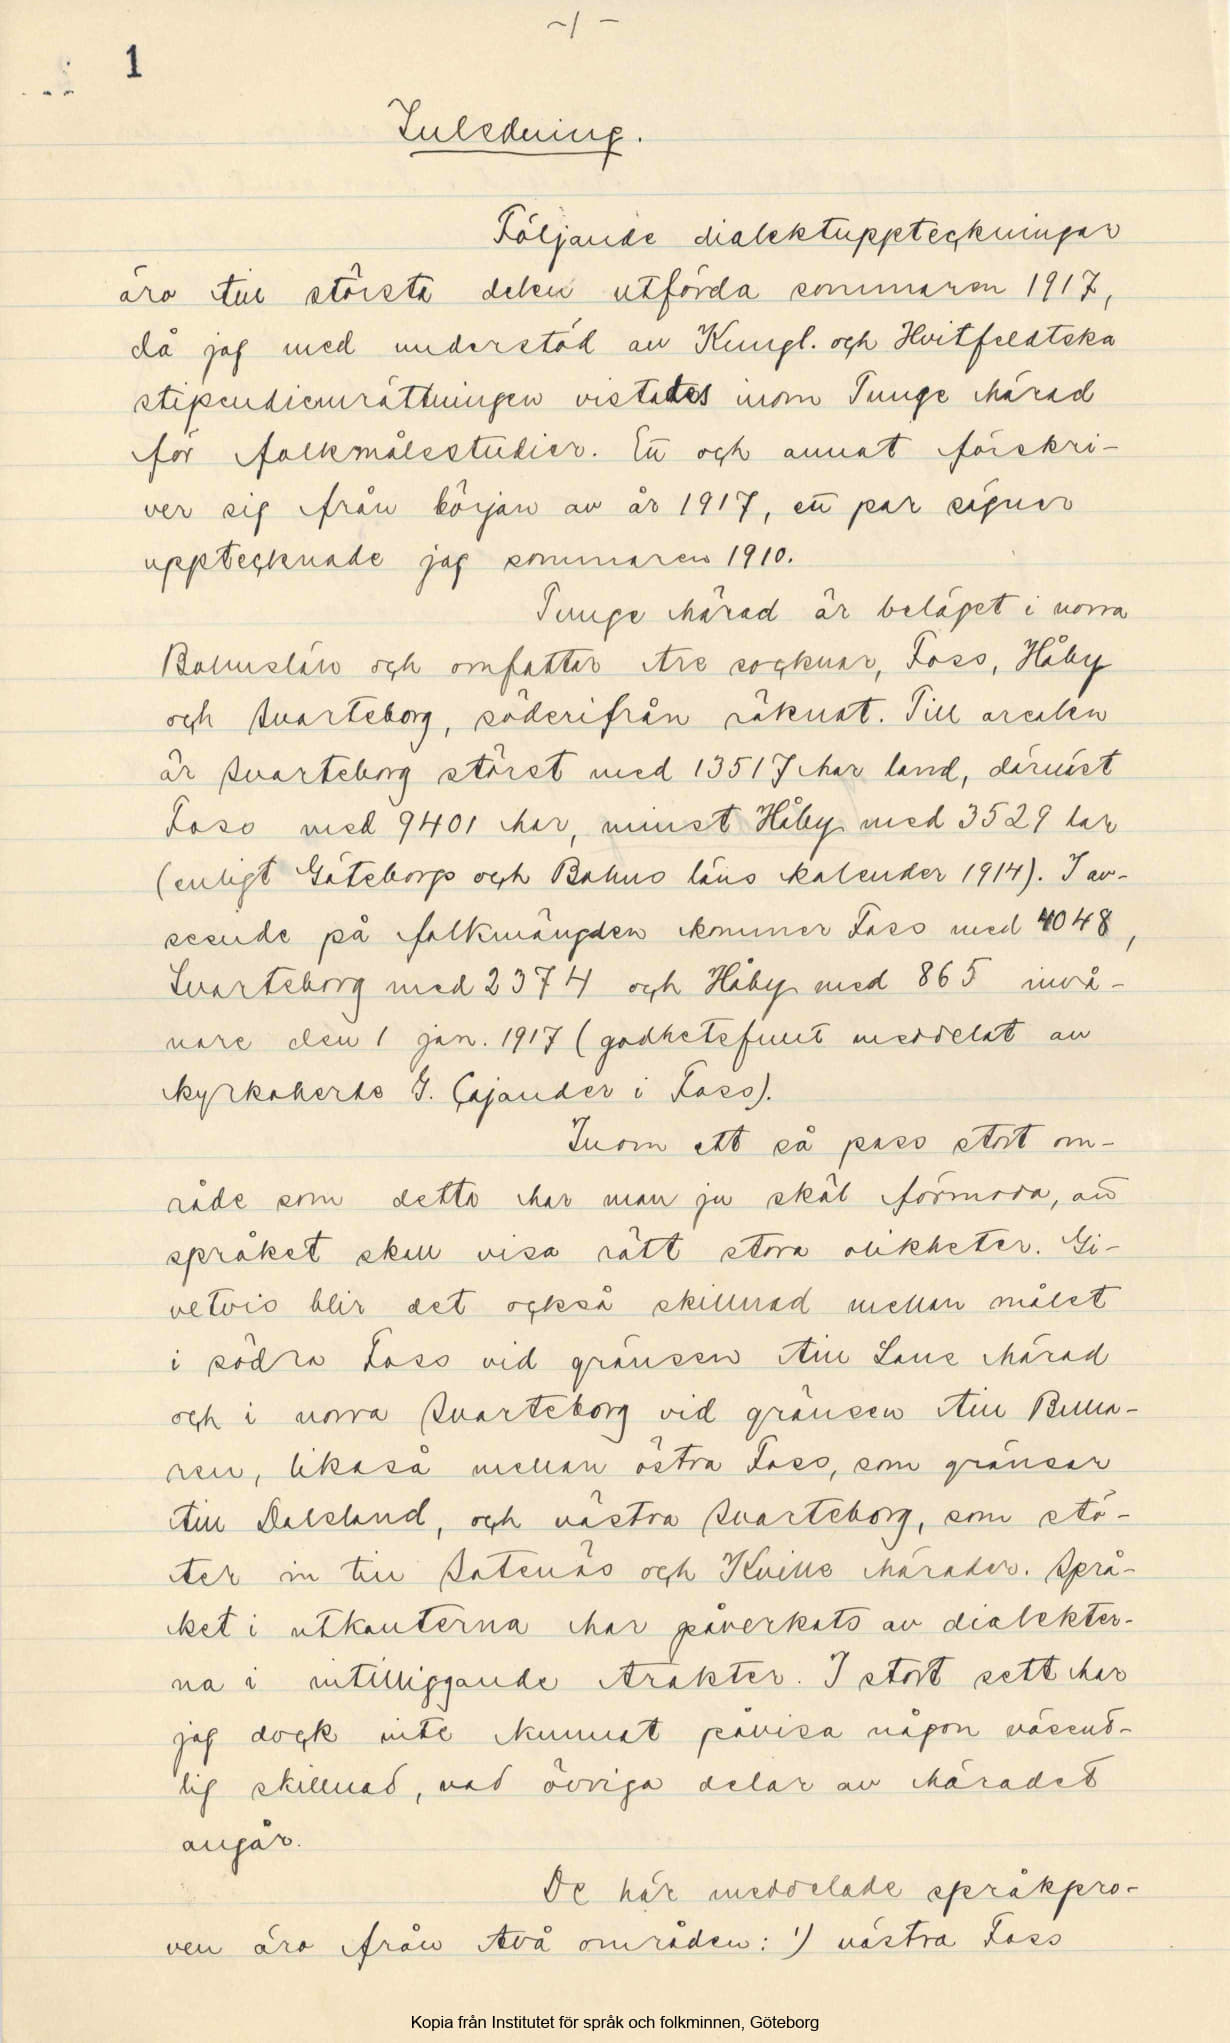 -1-
1
Inledning.
Följande dialektuppteckningar
äro till största delen utförda sommaren 1917,
då jag med understöd av Kungl. och Hvitfeldtska
stipendieinrättningen vistades inom Tunge härad
för folkmålsstudier. Ett och annat förskri-
ver sig från början av år 1917, ett par sägner
upptecknade jag sommaren 1910.
Tunge härad är beläget i norra
Bohuslän och omfattar tre socknar, Foss, Håby
och Svarteborg, söderifrån räknat. Till arealen
är Svarteborg störst med 13517 har land, därnäst
Foss med 9401 har, minst Håby med 3529 har
(enligt Göteborgs och Bohus läns kalender 1914). I av-
seende på folkmängden kommer Foss med 4048,
Svarteborg med 2374 och Håby med 865 invå-
nare den 1 jan. 1917 (godhetsfullt meddelat av
kyrkoherde G. Cajander i Foss).
Inom ett så pass stort om-
råde som detta har man ju skäl förmoda, att
språket skall visa rätt stora olikheter. Gi-
vetvis blir det också skillnad mellan målet
i södra Foss vid gränsen till Lane härad
och i norra Svarteborg vid gränsen till Bulla-
ren, likaså mellan östra Foss, som gränsar
till Dalsland, och västra Svarteborg, som stö-
ter in till Sotenäs och Kville härader. Språ-
ket i utkanterna har påverkats av dialekter-
na i intilliggande trakter. I stort sett har
jag dock inte kunnat påvisa någon väsend-
lig skillnad, vad övriga delar av häradet
angår.
De här meddelade språkpro-
ven äro från två områden: 1) västra Foss
Kopia från Institutet för språk och folkminnen, Göteborg